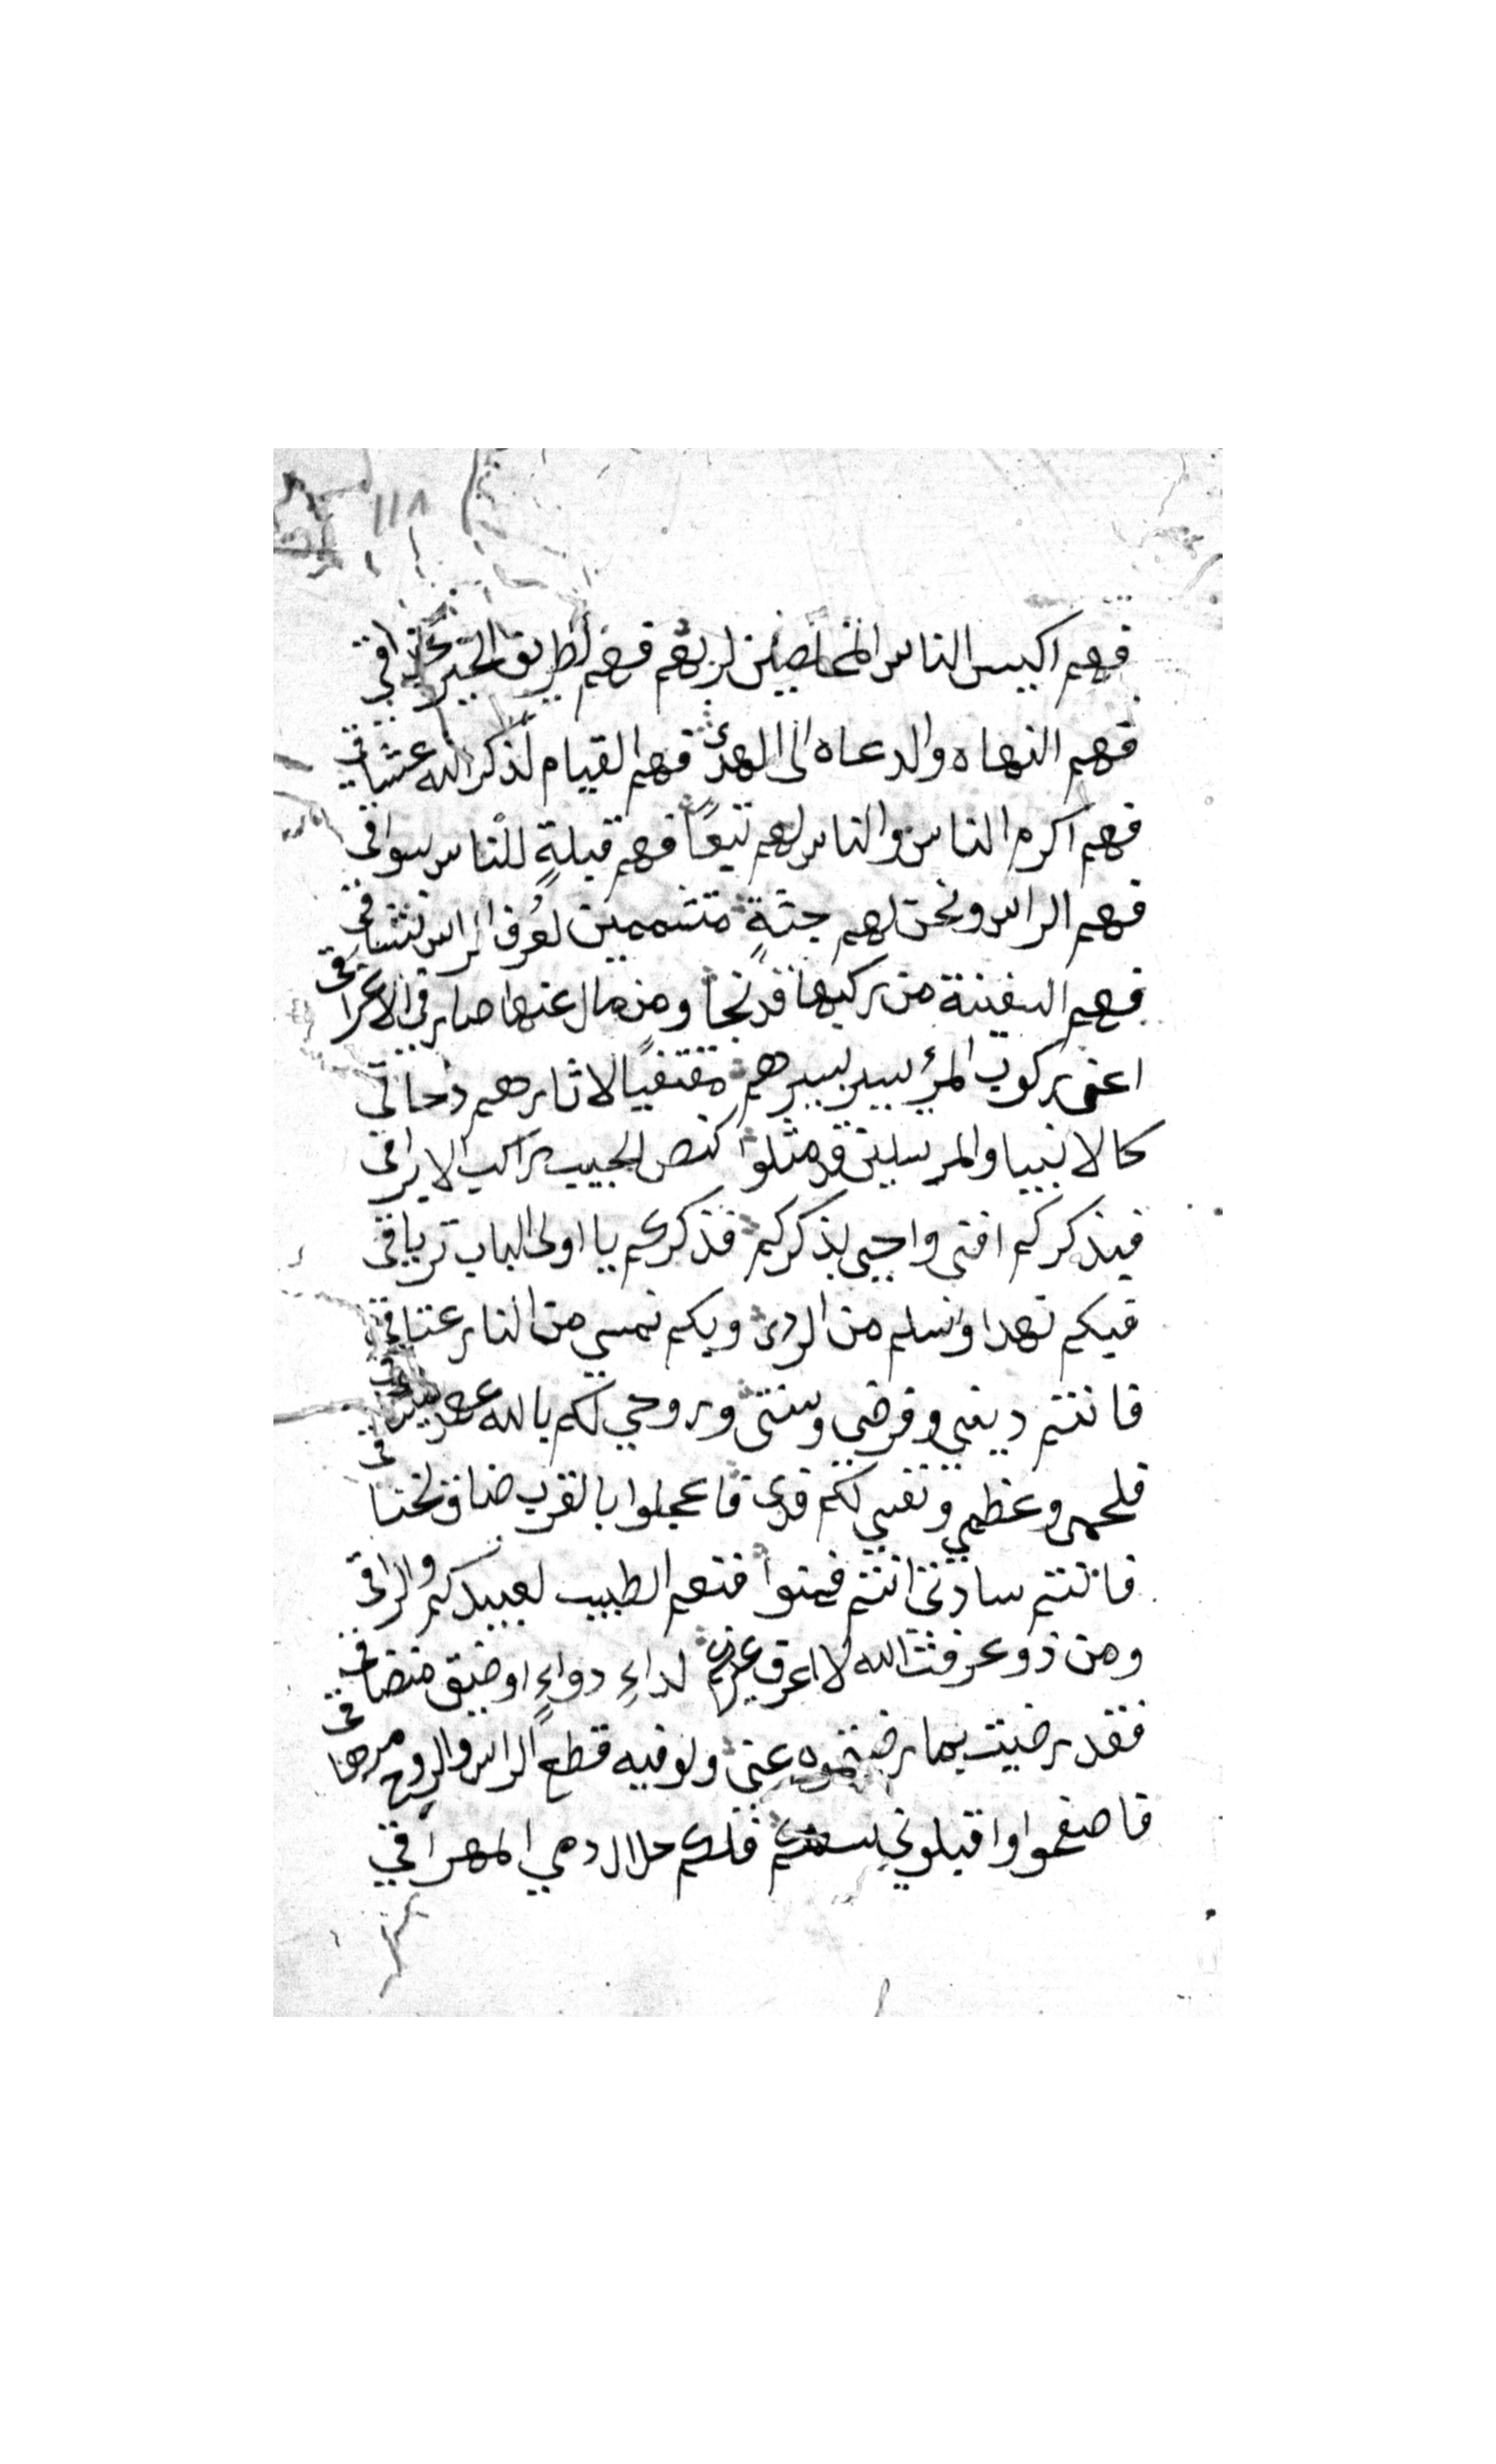 ١١٨
فهم اكيس الناس المخلصين لربهم فهم لطريق الخير
فهم النهاه والدعاه الى الهدى فهم القيام لذكر الله عشاقي
فهم اكرم الناس والناس لهم تبعًا فهم قبلةٍ للناس سواقي
فهم الراس ونحن لهم جثةٍ متشممين لعُرف الراس نشاقي
فهم السفينة من ركبها قد نجا ومن مال عنها صار في الاغراقي
اعني ركوب المرء يسير بسيرهم مقتفيًا لاثارهم
كالانبيا والمرسلين قد مثلوا كنص الحبيب راكب الابراقي
فبذكركم افتي واحيى بذكركم فذكركم يا اولى الباب ترياقي
فبكم نهدا ونسلم من الردى وبكم نمسي من النار عتاقي
فانتم ديني وفرضي وسنتي وروحي لكم بالله عهد
فلحمي وعظمي ونفسي لكم فدى فاعجلوا بالقرب ضاق
فانتم سادتي انتم فمنوا فنعم الطبيب لعبيدكم والراقي
ومن ذو عرفت الله لا اعرف غيركم لداءٍ دواءٍ او ضيق
فقد رضيت بما رضيتموه عني ولو فيه قطع الراس والروح مرهاقي
فاصفحوا واقبلوني فلكم حلال دمي المهراقي